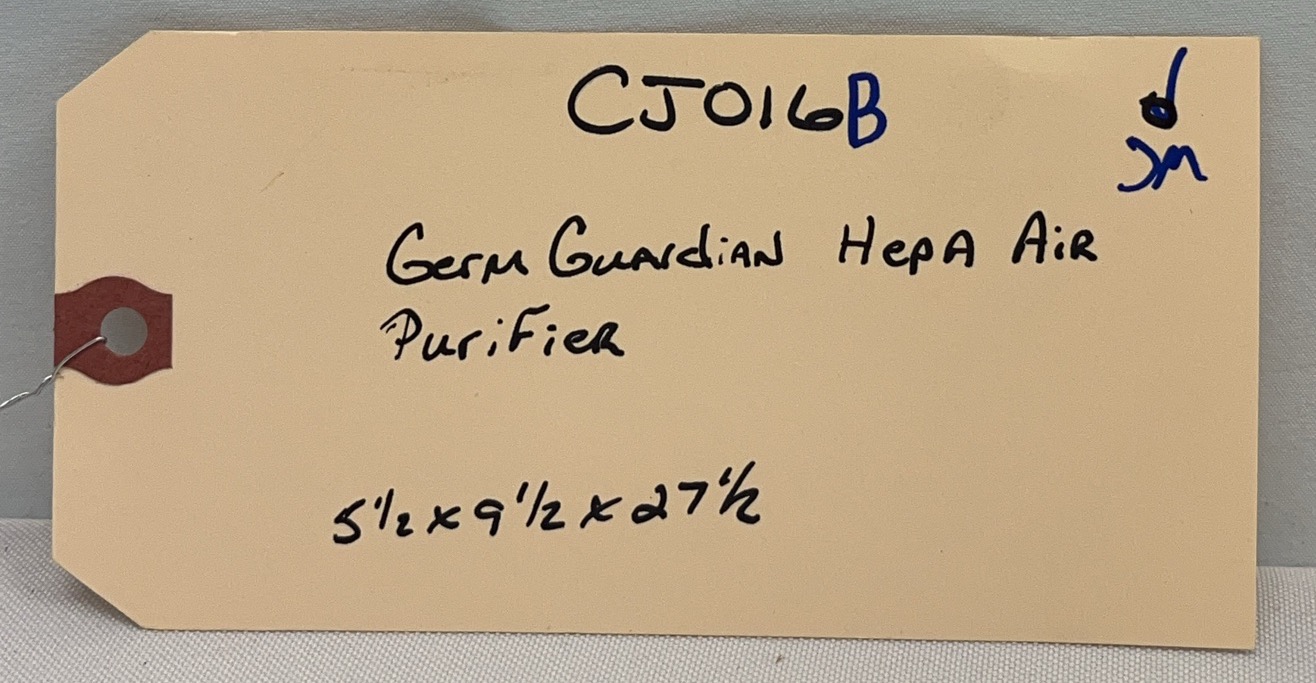 CJ016B
JM
Germ Guardian HepA Air
Purifier
5 1/2 x 9 1/2 x 27 1/2